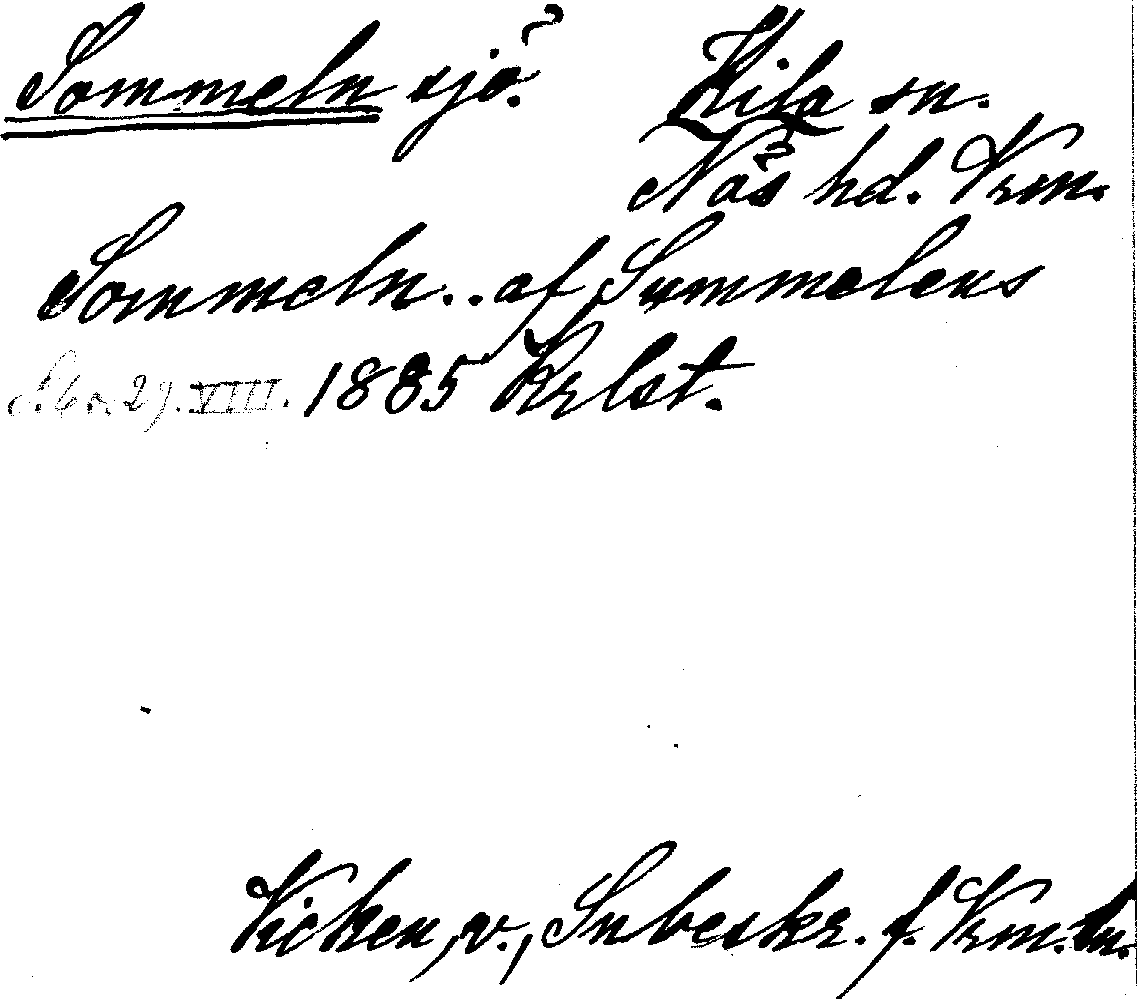 Sommeln sjö. Kila sn.
Näs hd. Vrm.
Sommeln.. af Summelens
29. VIII. 1885 Krlst.
Vicken, v., Snbeskr. f. Vrm. ln.